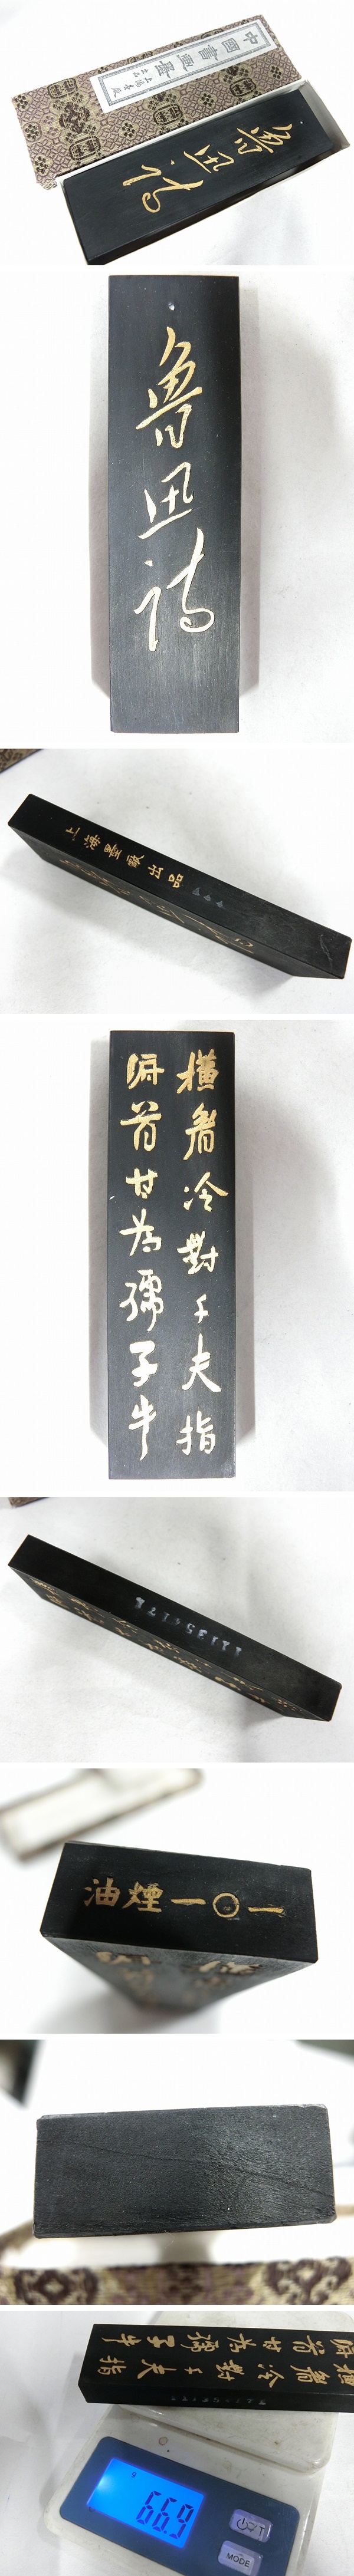 中國書畫墨
上海墨厰
出品
魯迅詩
魯迅詩
上海墨厰出品
橫眉冷對千夫指
俯首甘為孺子牛
油煙一〇一
橫眉冷對千夫指
俯首甘為孺子牛
g
66.9
T
MODE